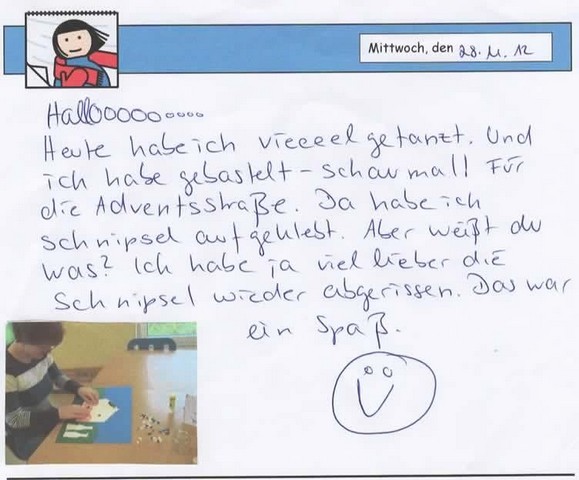 Mittwoch, den 28.11.12
Hallooooooooo
Heute habe ich vieeeel getanzt. Und
ich habe gebastelt - schau mal! Für
die Adventsstraße. Da habe ich
schnipsel aufgeklebt. Aber weißt du
was? Ich habe ja viel lieber die
Schnipsel wieder abgerissen. Das war
ein Spaß.